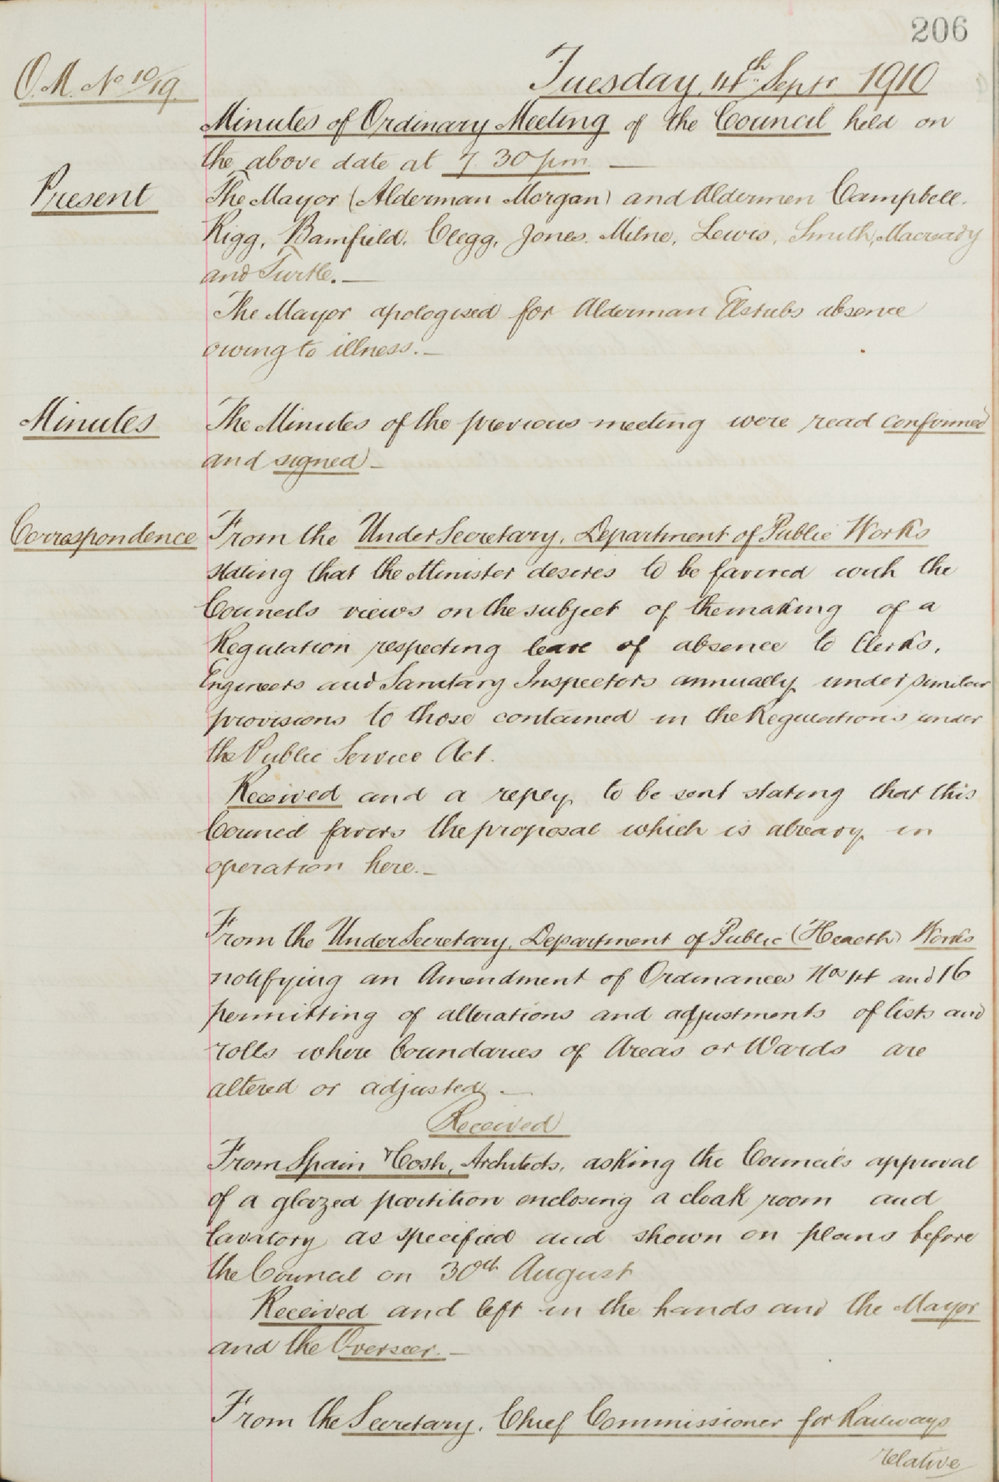 206
O.M. No 19/19.
Tuesday, 4th Septr 1910
Minutes of Ordinary Meeting of the Council held on
the above date at 7 30 pm —
Present
The Mayor (Alderman Morgan) and Aldermen Campbell.
Rigg, Bamfield, Clegg, Jones, Milne, Lewis, Smith, Macready
and Turtle. —
The Mayor apologised for Alderman Elstubs absence
owing to illness. —
Minutes
The Minutes of the previous meeting were read confirmed
and signed —
Correspondence
From the Under Secretary, Department of Public Works
stating that the Minister desires to be favored with the
Councils views on the subject of the making of a
Regulation respecting leave of absence to Clerks,
Engineers and Sanitary Inspectors annually under similar
provisions to those contained in the Regulations under
the Public Service Act.
Received and a reply to be sent stating that this
Council favors the proposal which is already in
operation here. —
From the Under Secretary, Department of Public (Health) Works
notifying an Amendment of Ordinances Nos 14 and 16
permitting of alterations and adjustments of lists and
rolls where boundaries of Areas or Wards are
altered or adjusted —
Received
From Spain & Cosh, Architects, asking the Council's approval
of a glazed partition enclosing a cloak room and
lavatory as specified and shown on plans before
the Council on 30th August
Received and left in the hands and the Mayor
and the Overseer. —
From the Secretary, Chief Commissioner for Railways
relative